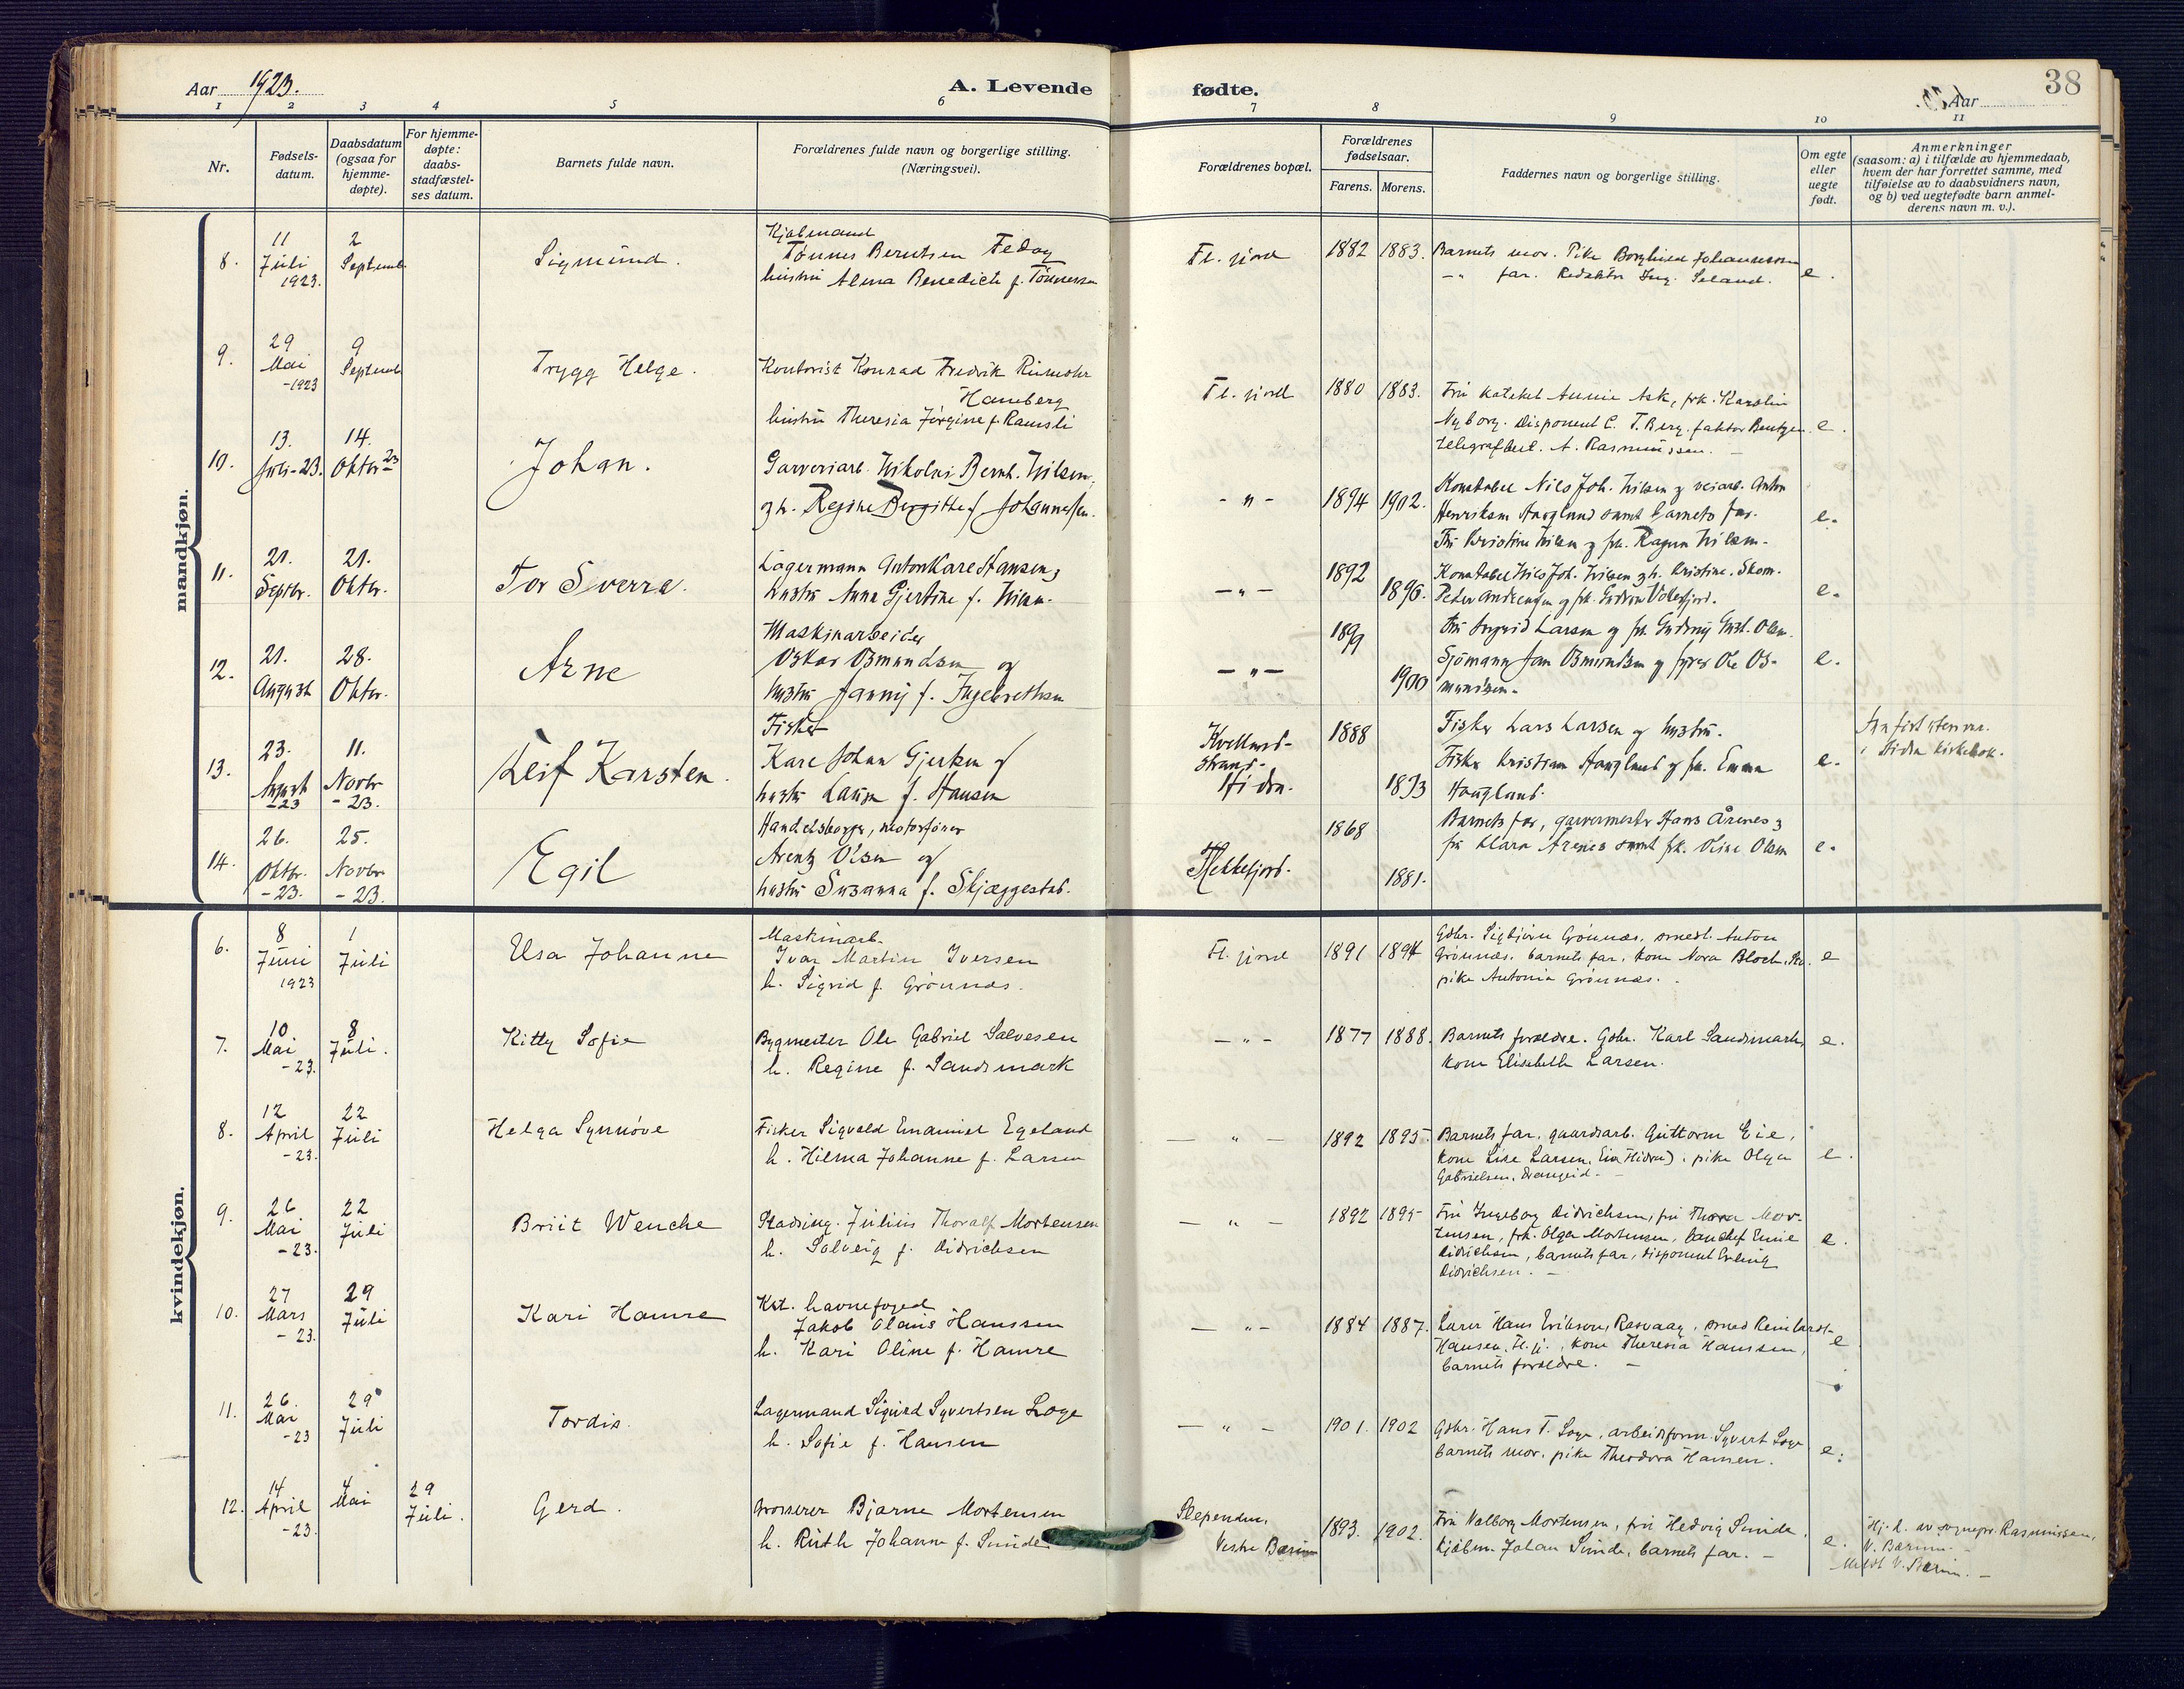 Aar 1923.
A. Levende fødte.
Aar
38
1 2 3 4 5 6 7 8 9 10 11
Nr.
Fødsels-
datum.
Daabsdatum
(ogsaa for
hjemme-
døpte).
For hjemme-
døpte:
daabs-
stadfæstel-
ses datum.
Barnets fulde navn.
Forældrenes fulde navn og borgerlige stilling.
(Næringsvei).
Forældrenes bopæl.
Forældrenes
fødselsaar.
Farens. Morens.
Faddernes navn og borgerlige stilling.
Om egte
eller
uegte
født.
Anmerkninger
(saasom: a) i tilfælde av hjemmedaab,
hvem der har forrettet samme, med
tilføielse av to daabsvidners navn,
og b) ved uegtefødte barn anmel-
derens navn m. v.).
mandkjøn.
8.
11
Juli
1923.
2
Septemb.
Sigmund.
Kjøbmand
Tønnes Berntsen Feda og
hustru Alma Benedicte f. Tønnessen
Fl. fjord
1882 1883.
Barnets mor. Pike Borghild Johannessen
-"- far. Redaktør Ing. Seland.
e.
9.
29
Mai
-1923
9
Septemb
Trygg Helge.
Kontorist Konrad Fredrik
Hamberg
hustru Theresia Jørgine f. Ramsli
Fl. fjord
1880 1883.
Fru kateket Annie Ask, frk. Karolin
Nyborg. Disponent C. T. Berg. faktor Bentzen
telegrafbest. A. Rasmussen. -
e.
10.
13.
Juli-23.
14.
Oktbr 23
Johan.
Garveriarb. Nikolai Bernh. Nilsen,
og h. Regine Bergitte f. Johannessen.
- " -
1894 1902.
Konstabel Nils Joh. Nilsen og veiarb. Anton
Henriksen Haagland samt barnets far.
Fru Kristine Nilsen og frk. Ragna Nilsen.
e.
11.
21.
Septbr.
21.
Oktbr.
Tor Sverre.
Lagermann Anton Kare Hansen,
hustru Anna Gjertine f. Nilsen.
- " -
1892
1896.
Konstabel Nils Joh. Nilsen og h. Kristine. Skom.
Peder Andreassen og frk. Gudrun
e.
12.
21.
August
28.
Oktbr.
Arne
Maskinarbeider
Oskar Osmundsen og
hustru Janny f. Ingebrethsen
- " -
1899
1900
Fru Ingrid Larsen og frk. Gudny Olsen.
Sjømann Jan Osmundsen og fyrb. Ole Os-
mundsen.
e.
13.
23.
August
-23
11.
Novbr
-23.
Leif Karsten.
Fisker
Kare Johan Gjertsen og
hustru Laura f. Hansen
strand.
Hidra.
1888
1893
Fisker Lars Larsen og hustru.
Fisker Kristian Haugland og frk. Emma
Haugland.
e.
i Hidra kirkebok.
14.
26.
Oktbr.
-23.
25.
Novbr
-23.
Egil
Handelsborger, motorfører
Arentz Olsen og
hustru Susanna f. Skjæggestad.
Flekkefjord.
1868
1881.
Barnets far, garvermester Hans Årenes,
fru Klara Årenes samt frk. Olsen
e.
kvindekjøn.
6.
8
Juni
1923
1
Juli
Elsa Johanne
Maskinarb.
Ivar Martin Iversen
h. Sigrid f. Grønnæs.
Fl. fjord
1891 1894
Gdbr. Sigbjørn Grønnæs, smedl. Anton
Grønnæs, barnets far, kone Nora Bloch,
pike Antonia Grønnæs.
e
7.
10
Mai
-23.
8
Juli.
Kitty Sofie
Bygmester Ole Gabriel Salvesen
h. Regine f. Sandsmark
- " -
1877 1888.
Barnets forældre. Gdbr. Karl Sandsmark,
kone Elisabeth Larsen.
e.
8.
12
April
-23.
22
Juli
Helga Synnøve
Fisker Sigvald Emanuel Egeland
h. Hilma Johanne f. Larsen
- " -
1892 1895
Barnets far, gaardsarb. Guttorm Eie,
kone Lise Larsen, Eie (Hidra), pike Olga
Gabrielsen,
e.
9.
26
Mai
-23.
22
Juli
Briit Wenche
Stadsing. Julius Thoralf Mortensen
h. Solveig f. Didrichsen
- " -
1892 1895
Fru Ingeborg Didrichsen, fru Thora Mor-
tensen, frk. Olga Mortensen, banchef Emil
Didrichsen, barnets far, disponent Erling
Didrichsen. -
e.
10.
27
Mars
-23.
29
Juli
Kari Hamre
Kst. havnefoged
Jakob Olaus Hanssen
h. Kari Oline f. Hamre
- " -
1884 1887.
Lærer Hans Erikson, Rasvaag, smed Reinhardt
Hansen, Fl. fj., kone Theresia Hanssen,
barnets forældre. -
e
11.
26.
Mai
-23
29
Juli
Tordis.
Lagermand Sigurd Syvertsen Loge
h. Sofie f. Hansen
- " -
1901. 1902
Gdbr. Hans T. Loge, arbeidsform. Syvert Loge
barnets mor, pike Theodora Hansen.
e.
12.
14
April
-23.
4
Mai
29
Juli.
Gerd.
Grosserer Bjarne Mortensen
h. Ruth Johanne f. Sunde
Slependen,
Vestre Bærum
1893. 1902.
Fru Valborg Mortensen, fru Hedvig Sunde,
kjøbm. Johan Sunde, barnets far. -
e.
Hj. d. av sognepr. Rasmussen,
V. Bærum. -
Meldt V. Bærum. -